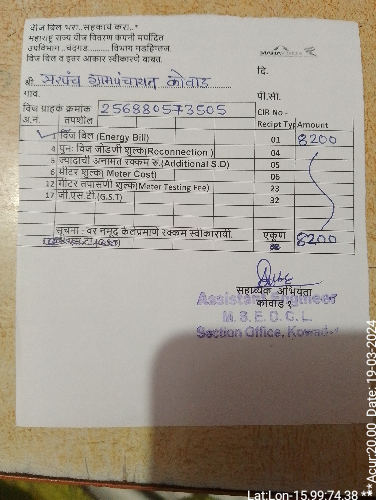 वीज बिल भरा..सहकार्य करा..*
महाराष्ट्र राज्य वीज वितरण कंपनी मर्यादित
उपविभाग ..चंदगड.......... विभाग गडहिंग्लज.
विज बिल व इतर आकार स्वीकारणे बाबत.
दि.
श्री. सरपंच ग्रामपंचायत कोवाड
गाव. पी.सी.
विज ग्राहक क्रमांक 256880573505 CIR No -
अ.नं. तपशील Recipt Typ Amount
विज बिल (Energy Bill) 01 8200
4 पुनः विज जोडणी शुल्क(Reconnection) 04
5 ज्यादाची अनामत रक्कम रु.(Additional S.D) 05
6 मीटर शुल्क( Meter Cost) 06
12 मीटर तपासणी शुल्क(Mater Testing Fee) 23
17 जी.एस.टी.(G.S.T) 32
सूचना : वर नमूद केलेप्रमाणे रक्कम स्वीकारावी. एकूण 8200
सहाय्यक अभियंता
कोवाड १
Assistant Engineer
M. S. E. D. C. L.
Section Office, Kowad-1
Lat:Lon-15.99:74.38
***Acur:20.00 Date: 19-03-2024